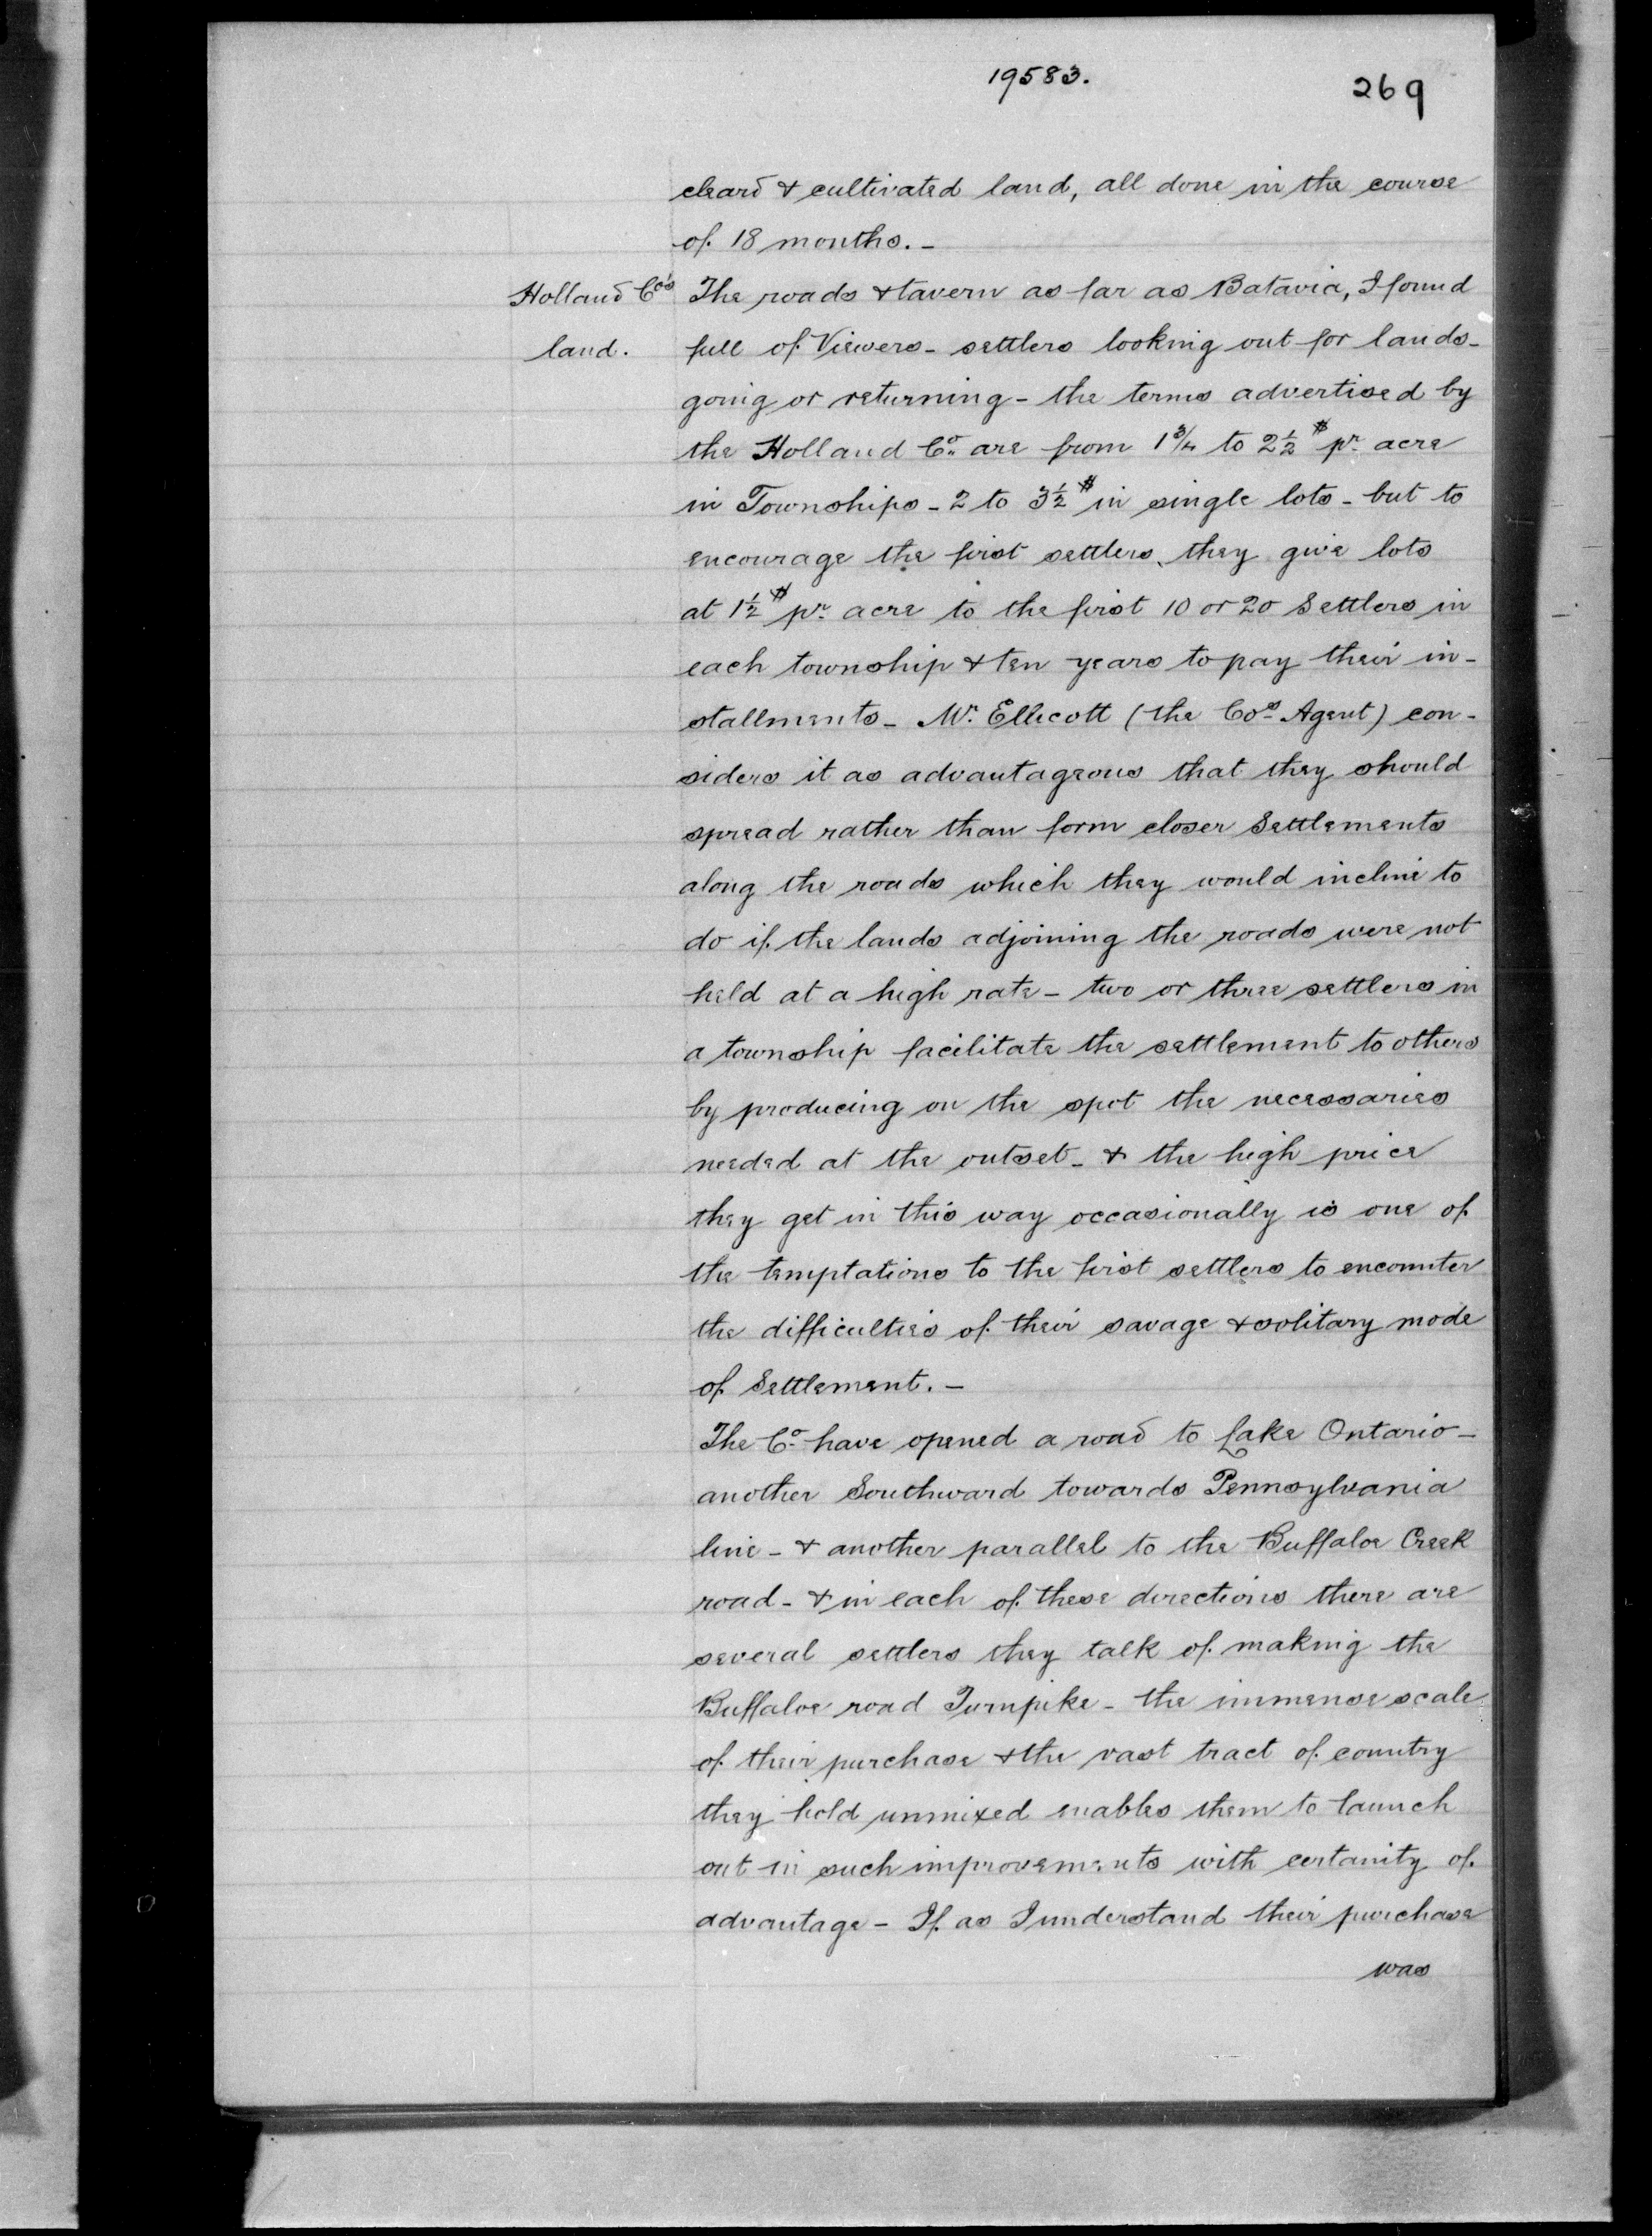 19583.
269
cleard & cultivated land, all done in the course
of 18 months. -
Holland Co's
land.
The roads & tavern as far as Batavia, I found
full of Viewers - settlers looking out for lands -
going or returning - the terms advertised by
the Holland Co. are from 1 3/4 to 2 1/2 $ pr. acre
in Townships - 2 to 3 1/2 $ in single lots - but to
encourage the first settlers, they give lots
at 1 1/2 $ pr. acre to the first 10 or 20 Settlers in
each township & ten years to pay their in-
stallments - Mr. Ellicott (the Cos. Agent) con-
siders it as advantageous that they should
spread rather than form closer Settlements
along the roads which they would incline to
do if the lands adjoining the roads were not
held at a high rate - two or three settlers in
a township facilitate the settlement to others
by producing on the spot the necessaries
needed at the outset - & the high price
they get in this way occasionally is one of
the temptations to the first settlers to encounter
the difficulties of their savage & solitary mode
of Settlement. -
The Co. have opened a road to Lake Ontario -
another Southward towards Pennsylvania
line - & another parallel to the Buffaloe Creek
road - & in each of these directions there are
several settlers they talk of making the
Buffaloe road Turnpike - the immense scale
of their purchase & the vast tract of country
they hold unmixed enables them to launch
out in such improvements with certanity of
advantage - If as I understand their purchase
was